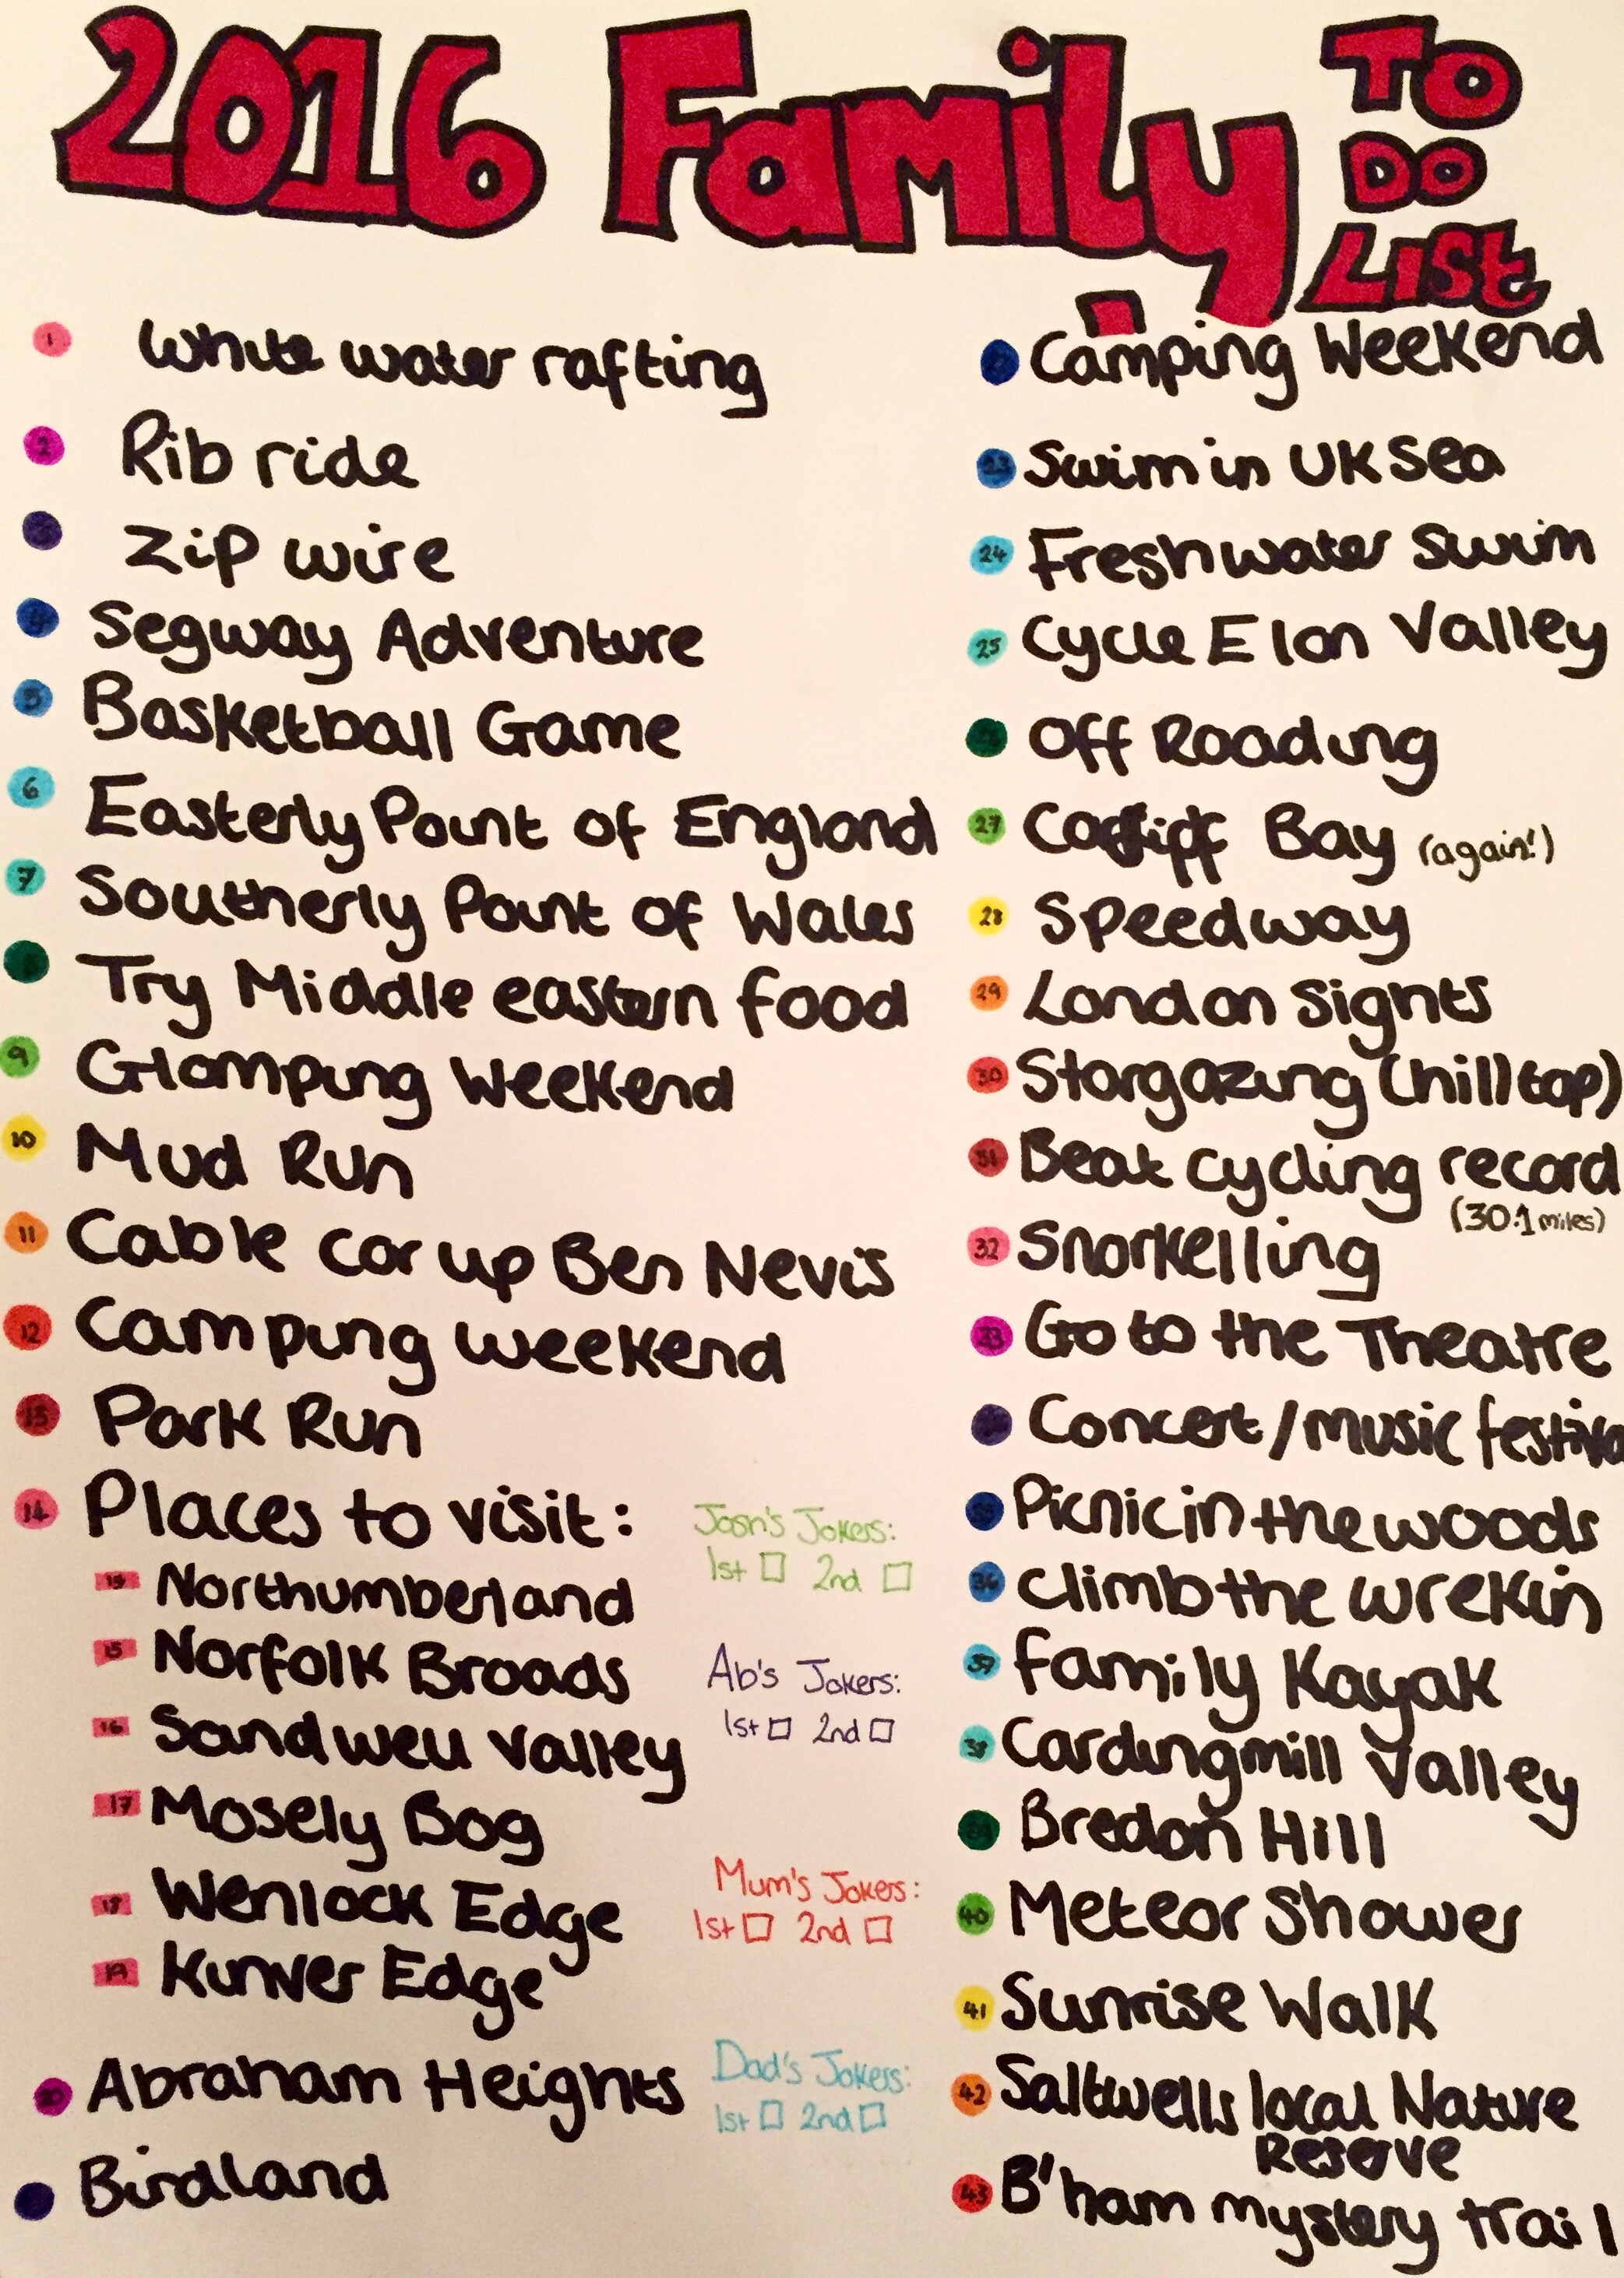 2016 Family TO DO LIST
1 White water rafting
2 Rib ride
3 Zip wire
4 Segway Adventure
5 Basketball Game
6 Easterly Point of England
7 Southerly Point of Wales
Try Middle eastern food
9 Glamping Weekend
10 Mud Run
11 Cable car up Ben Nevis
12 Camping weekend
13 Park Run
14 Places to visit:
Northumberland
15 Norfolk Broads
16 Sandwell Valley
17 Mosely Bog
Wenlock Edge
19 Kinver Edge
20 Abraham Heights
Birdland
Josh's Jokers:
1st 2nd
Ab's Jokers:
1st 2nd
Mum's Jokers:
1st 2nd
Dad's Jokers:
1st 2nd
Camping Weekend
23 Swim in UK Sea
24 Freshwater Swim
25 Cycle Elan Valley
Off Roading
27 Cardiff Bay (again!)
28 Speedway
29 London Sights
30 Stargazing (hilltop)
31 Beat cycling record
(30.1 miles)
32 Snorkelling
33 Go to the Theatre
Concert/music festiva
35 Picnic in the woods
36 Climb the wrekin
37 family Kayak
38 Cardingmill Valley
39 Bredon Hill
40 Meteor Shower
41 Sunrise Walk
42 Saltwells local Nature
Reserve
43 B'ham mystery trail